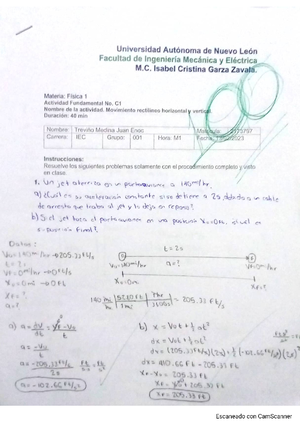 Universidad Autónoma de Nuevo León
Facultad de Ingeniería Mecánica y Eléctrica
M.C. Isabel Cristina Garza Zavala.
Materia: Física 1
Actividad Fundamental No. C1
Nombre de la actividad. Movimiento rectilíneos horizontal y vertical
Duración: 40 min
Nombre: Treviño Medina Juan Enoc
Carrera: IEC Grupo: 001 Hora: M1
Instrucciones:
Resuelve los siguientes problemas solamente con el procedimiento completo y visto
en clase.
1. Un jet aterriza en un portaaviones a 140 mi/hr.
a) ¿Cuál es su aceleración constante si se detiene a 2s debido a un cable
de arresto que traba al jet y lo deja en reposo?
b) Si el jet toca el portaaviones en una posición X₀=0m. ¿Cuál es
posición final?
Datos:
V₀=140mi/hr → 205.33 ft/s
t=2s
Vf=0mi/hr → 0 ft/s
X₀=0m → 0 ft
Xf=?
a=?
t=2s
V₀=140mi/hr a=? Vf=0mi/hr
X₀=0m Xf=?
= 205.33 ft/s
a) a = dv/dt = Vf-V₀/t
a = -V₀/t
a = -205.33 ft/s / 2s
a = -102.66 ft/s²
b) x = V₀t + ½at²
dx = V₀t + ½at²
dx = (205.33 ft/s)(2s) + ½(-102.66 ft/s²)(2s)²
dx = 410.66 ft - 205.33 ft
Xf-X₀ = 205.33 ft
Xf = 205.33 ft
Escaneado con CamScanner